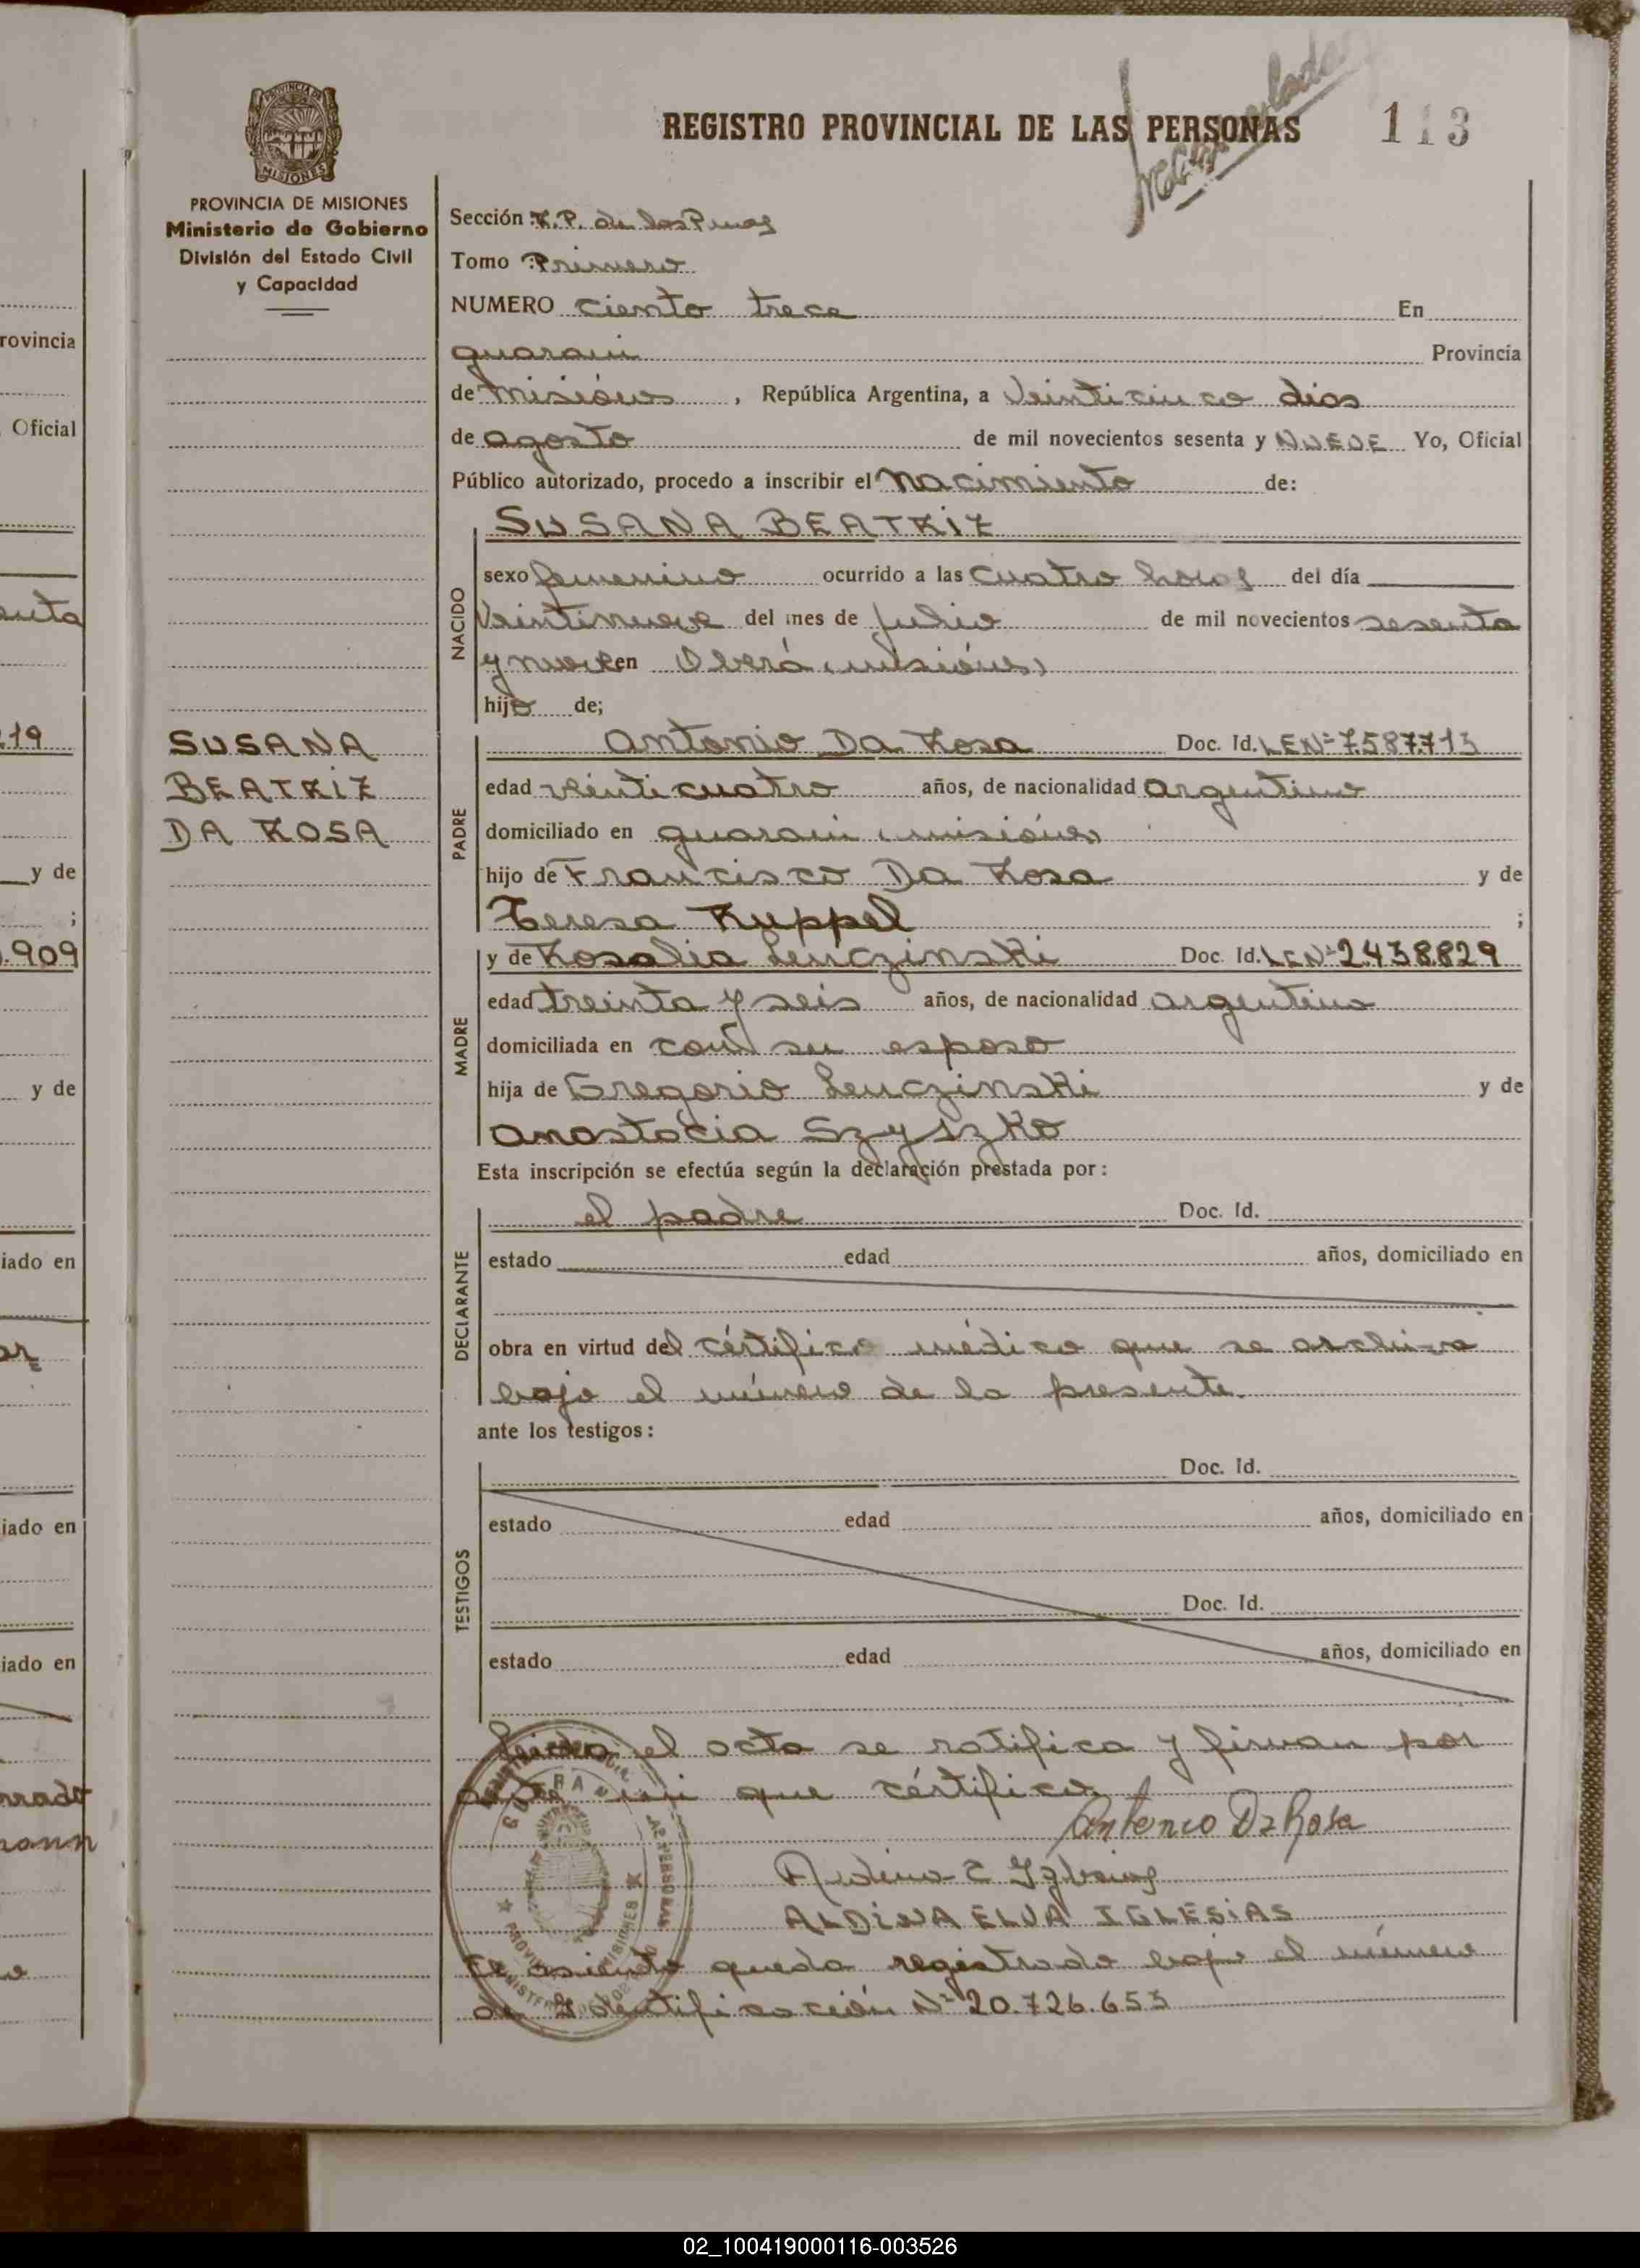 REGISTRO PROVINCIAL DE LAS PERSONAS 113
PROVINCIA DE MISIONES
MISIONES
PROVINCIA DE MISIONES
Ministerio de Gobierno
División del Estado Civil
y Capacidad
Sección R.P. de las Personas
Tomo Primero
NUMERO ciento trece En
guarani Provincia
de misiónes, República Argentina, a Veinticinco dias
de agosto de mil novecientos sesenta y NUEVE Yo, Oficial
Público autorizado, procedo a inscribir el nacimiento de:
SUSANA BEATRIZ
NACIDO
sexo femenino ocurrido a las cuatro horas del día
Veintinueve del mes de julio de mil novecientos sesenta
y nueve en Oberá (misiónes)
hijo de;
SUSANA
BEATRIZ
DA ROSA
PADRE
Antonio Da Rosa Doc. Id. LENº 7.587.713
edad veinticuatro años, de nacionalidad argentino
domiciliado en guarani (misiónes)
hijo de Francisco Da Rosa y de
Teresa Ruppel ;
MADRE
y de Rosalia Leuczinski Doc. Id. LCNº 2.438.829
edad treinta y seis años, de nacionalidad argentina
domiciliada en con su esposo
hija de Gregorio Leuczinski y de
anastacia Szyszko
Esta inscripción se efectúa según la declaración prestada por:
DECLARANTE
el padre Doc. Id.
estado edad años, domiciliado en
obra en virtud del cértifico médico que se archiva
bajo el número de la presente.
ante los testigos:
TESTIGOS
Doc. Id.
estado edad años, domiciliado en
Doc. Id.
estado edad años, domiciliado en
Leida el acta se ratifica y firman por
ante mi que cértifico
Antonio Da Rosa
Aldina E Iglesias
ALDINA ELVA IGLESIAS
El asiento queda registrado bajo el número
de Identificación Nº 20.726.653
rovincia
Oficial
enta
.19
y de
;
.909
y de
iado en
iado en
iado en
02_100419000116-003526